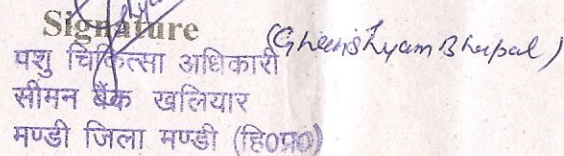 Signature
(Ghanshyam Bhupal)
पशु चिकित्सा अधिकारी
सीमन बैंक खलियार
मण्डी जिला मण्डी (हि0प्र0)